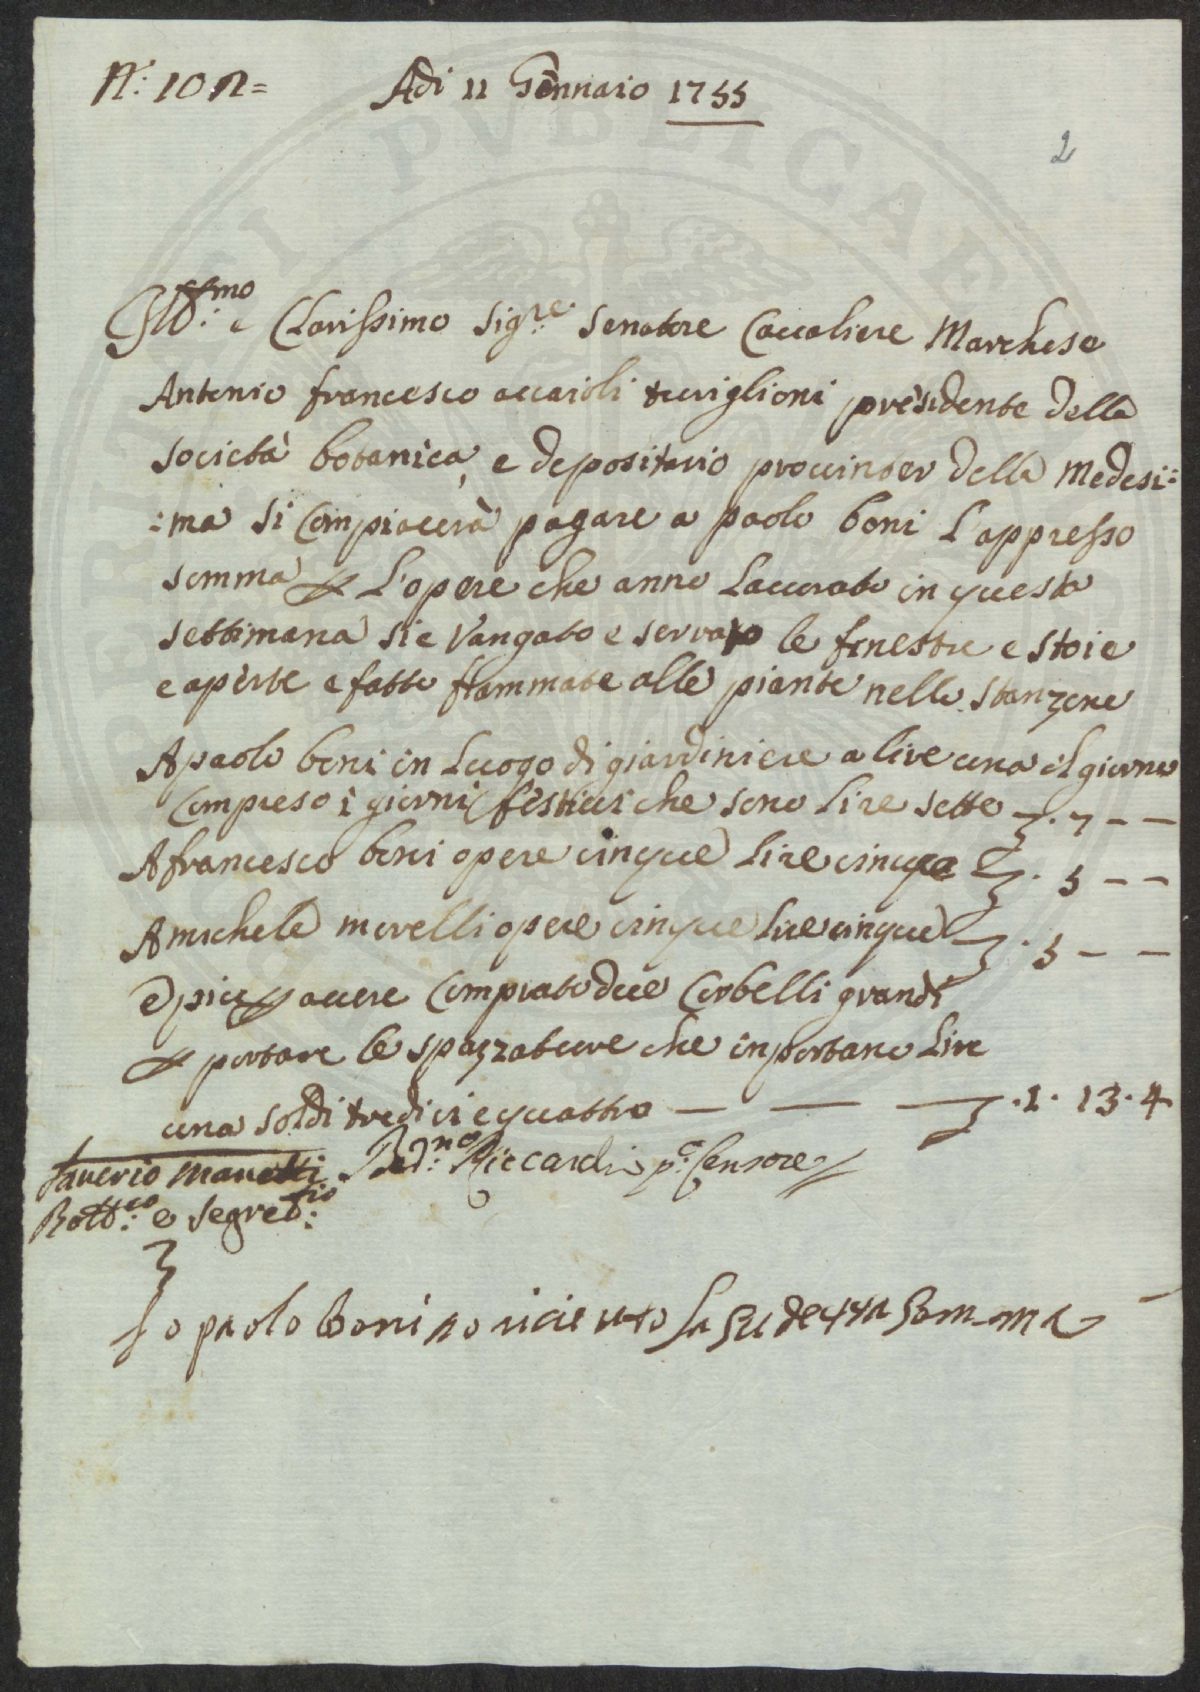 N.° 102=
Adi 11 Gennaio 1755
2
Ill:mo e Clarissimo Sig:re Senatore Caualiere Marchese
Antonio francesco acciaioli toriglioni presidente della
società botanica, e depositario prouinder della Medesi:
:ma si Compiacerà pagare a paolo boni L'appresso
somma L'opere che anno Lauorato in questa
settimana si e Vangato e servato le finestre e stoie
e aperte e fatto fiammate alle piante nello Stanzone
A paolo boni in Luogo di giardiniere a lire una il giorno
Compreso i giorni festiui che sono lire sette . 7 - -
A francesco boni opere cinque lire cinque . 5 - -
A michele morelli opere cinque lire cinque . 5 - -
E piu p auere Comprato due Corbelli grandi
p portare le spazzature che inportano Lire
una soldi tredici e quattro — — — .1. 13. 4
Sauerio Manetti Bed:no Riccardi p:o Censore
Bott:co e Segret:rio
Io paolo Boni o riceuuto la su detta Somma